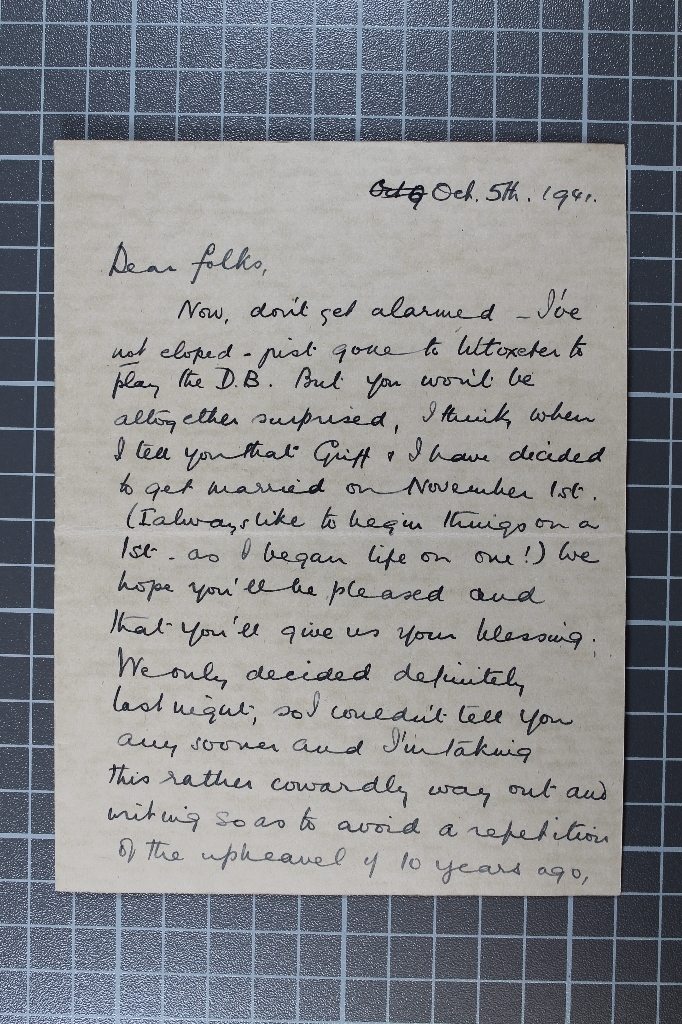 Oct 9 Oct. 5th. 1941.
Dear folks,
Now, don't get alarmed - I've
not eloped - just gone to Uttoxeter to
play the D.B. But you won't be
altogether surprised, I think, when
I tell you that Griff & I have decided
to get married on November 1st.
(I always like to begin things on a
1st - as I began life on one!) We
hope you'll be pleased and
that you'll give us your blessing.
We only decided definitely
last night, so I couldn't tell you
any sooner and I'm taking
this rather cowardly way out and
writing so as to avoid a repetition
of the upheavel of 10 years ago,